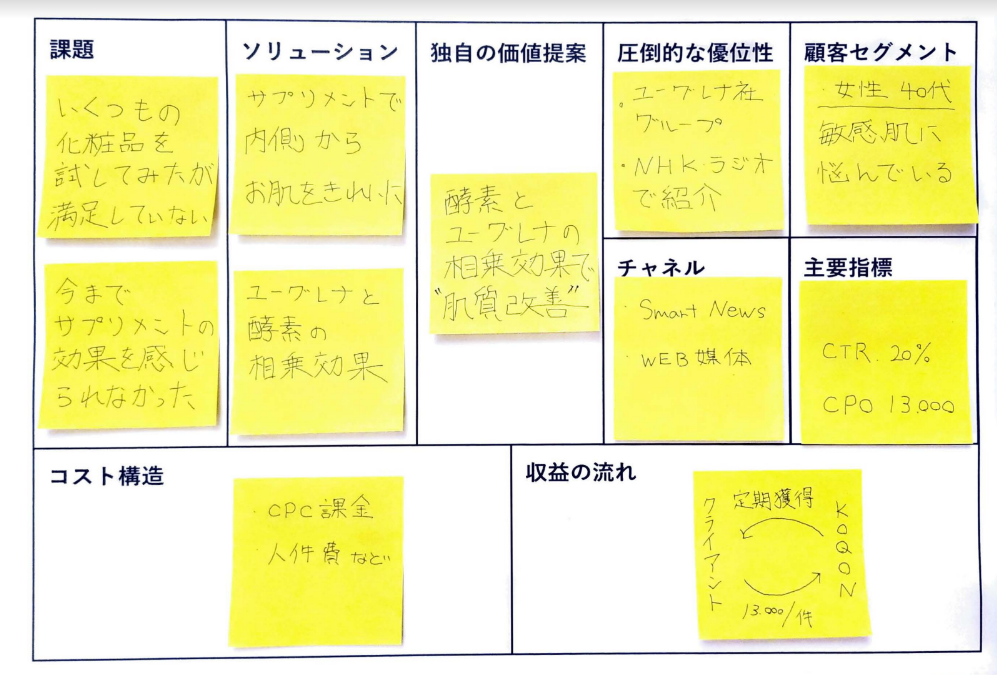 課題
いくつもの
化粧品を
試してみたが
満足していない
今まで
サプリメントの
効果を感じ
られなかった
ソリューション
サプリメントで
内側から
お肌をきれいに
ユーグレナと
酵素の
相乗効果
独自の価値提案
酵素と
ユーグレナの
相乗効果で
"肌質改善"
圧倒的な優位性
・ユーグレナ社
グループ
・NHK・ラジオ
で紹介
チャネル
・Smart News
・WEB媒体
顧客セグメント
・女性 40代
敏感肌に
悩んでいる
主要指標
CTR 20%
CPO 13,000
コスト構造
・CPC課金
・人件費など
収益の流れ
クライアント
定期獲得
KOQON
13,000/件